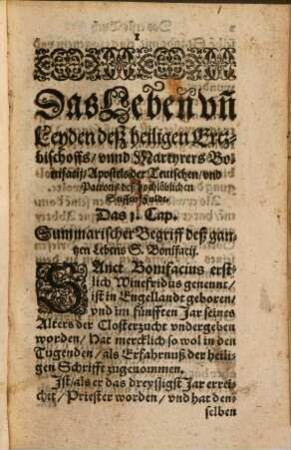 1
Das Leben vn̄
Leyden deß heiligen Ertz-
bischoffs/ vnnd Martyrers Bo-
nifacij/ Apostels der Teutschen/ vnd
Patrons deß hochlöblichen
Stiffts Fulde.
Das 1. Cap.
Summarischer Begriff deß gan-
tzen Lebens S. Bonifacij.
SAnct Bonifacius erst-
lich Winefridus genennt/
ist in Engellandt geboren/
vnd im fünfften Jar seines
Alters der Closterzucht vndergeben
worden/ Hat mercklich so wol in den
Tugenden/ als Erfahrnuß der heili-
gen Schrifft zugenommen.
Ist/ als er das dreyssigst Jar errei-
chet/ Priester worden/ vnd hat den-
selben